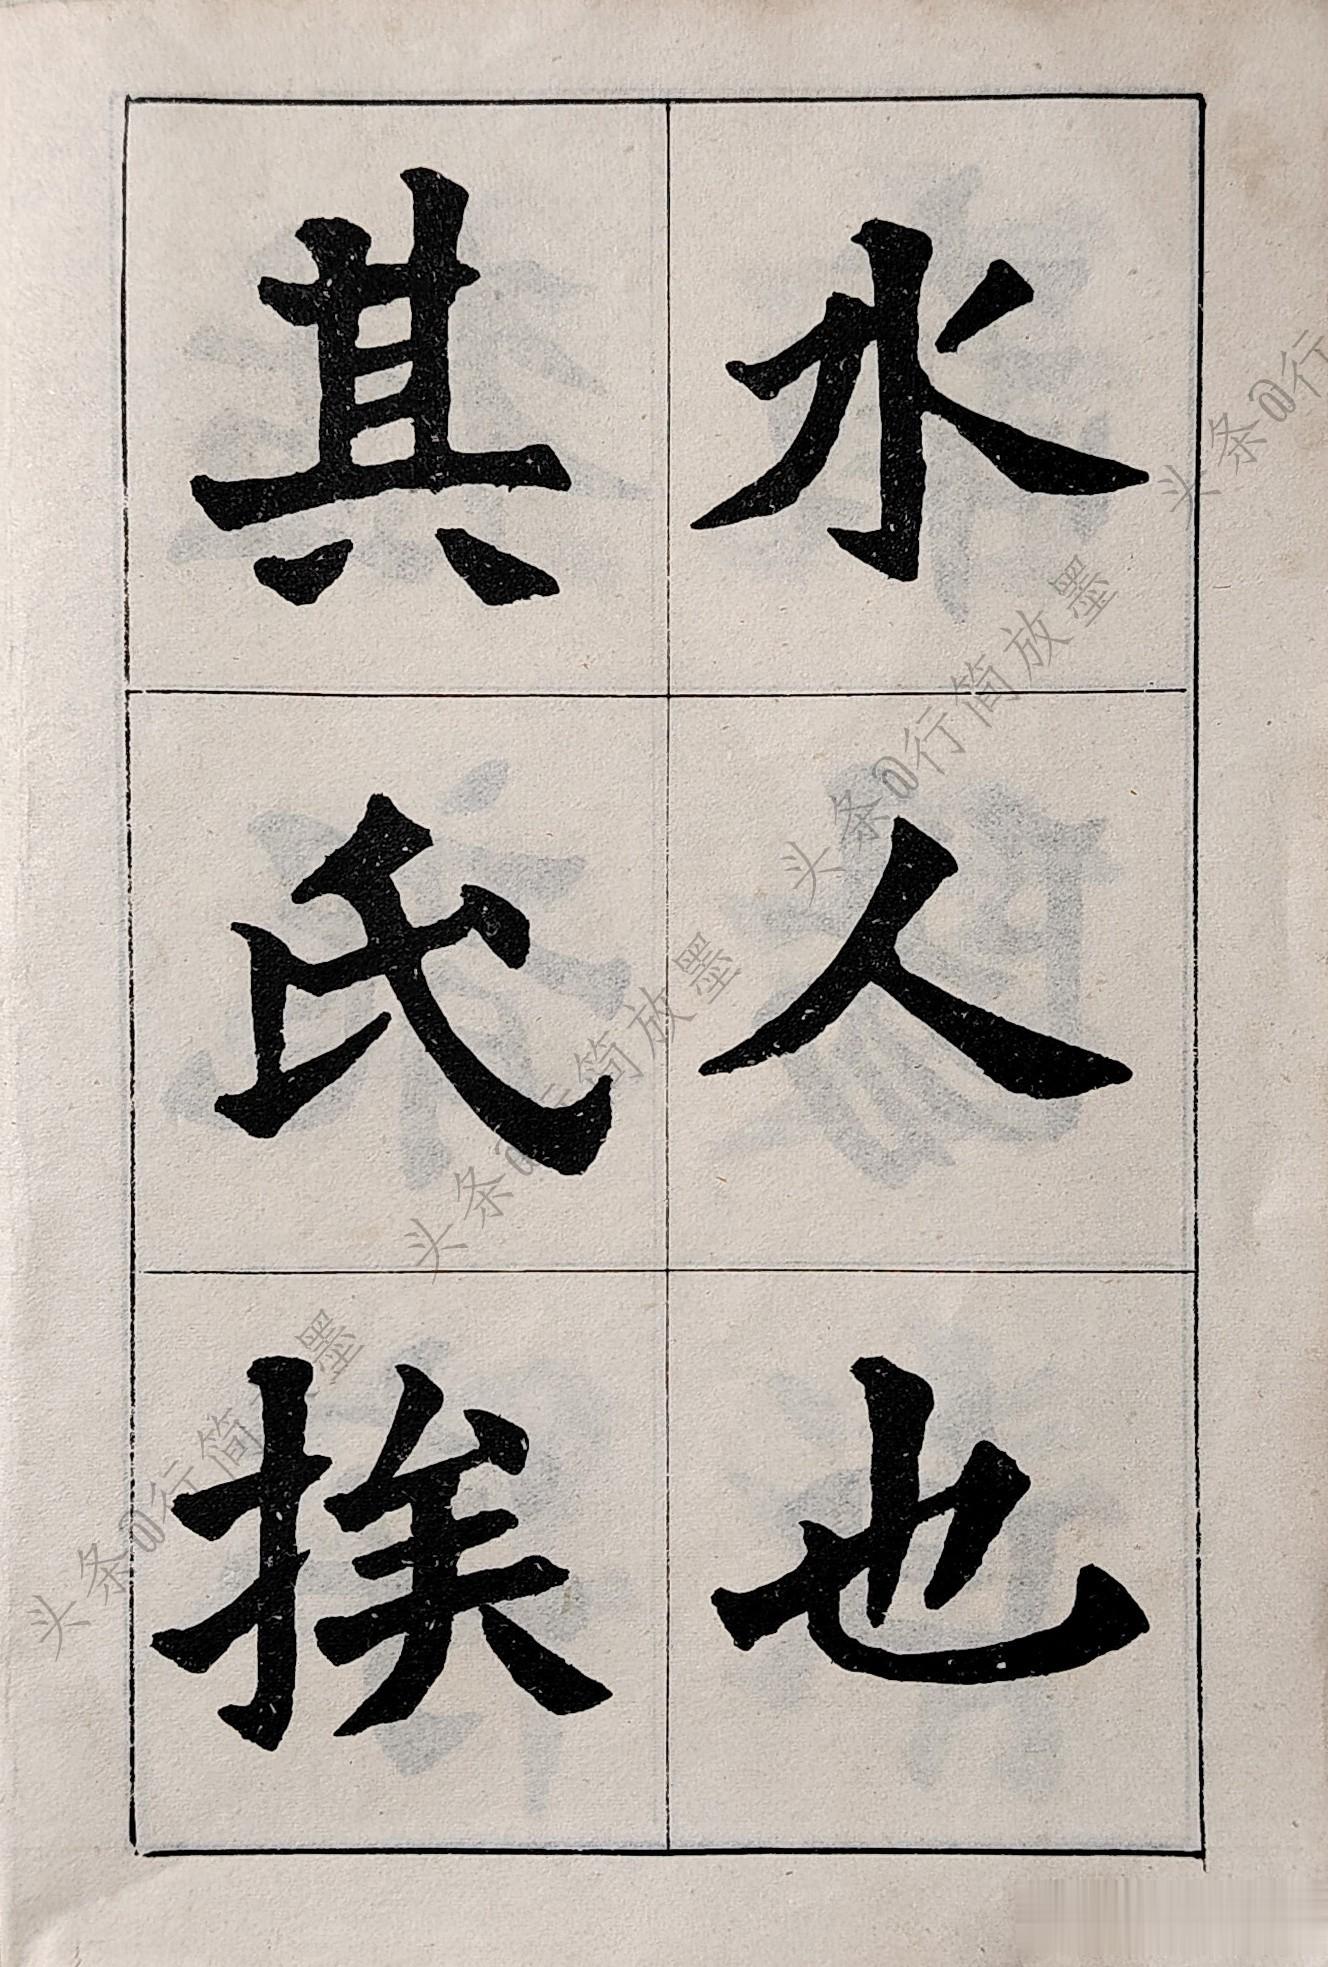 水人也
其氏挨
头条@行简放墨
头条@行简放墨
头条@行简放墨
头条@行